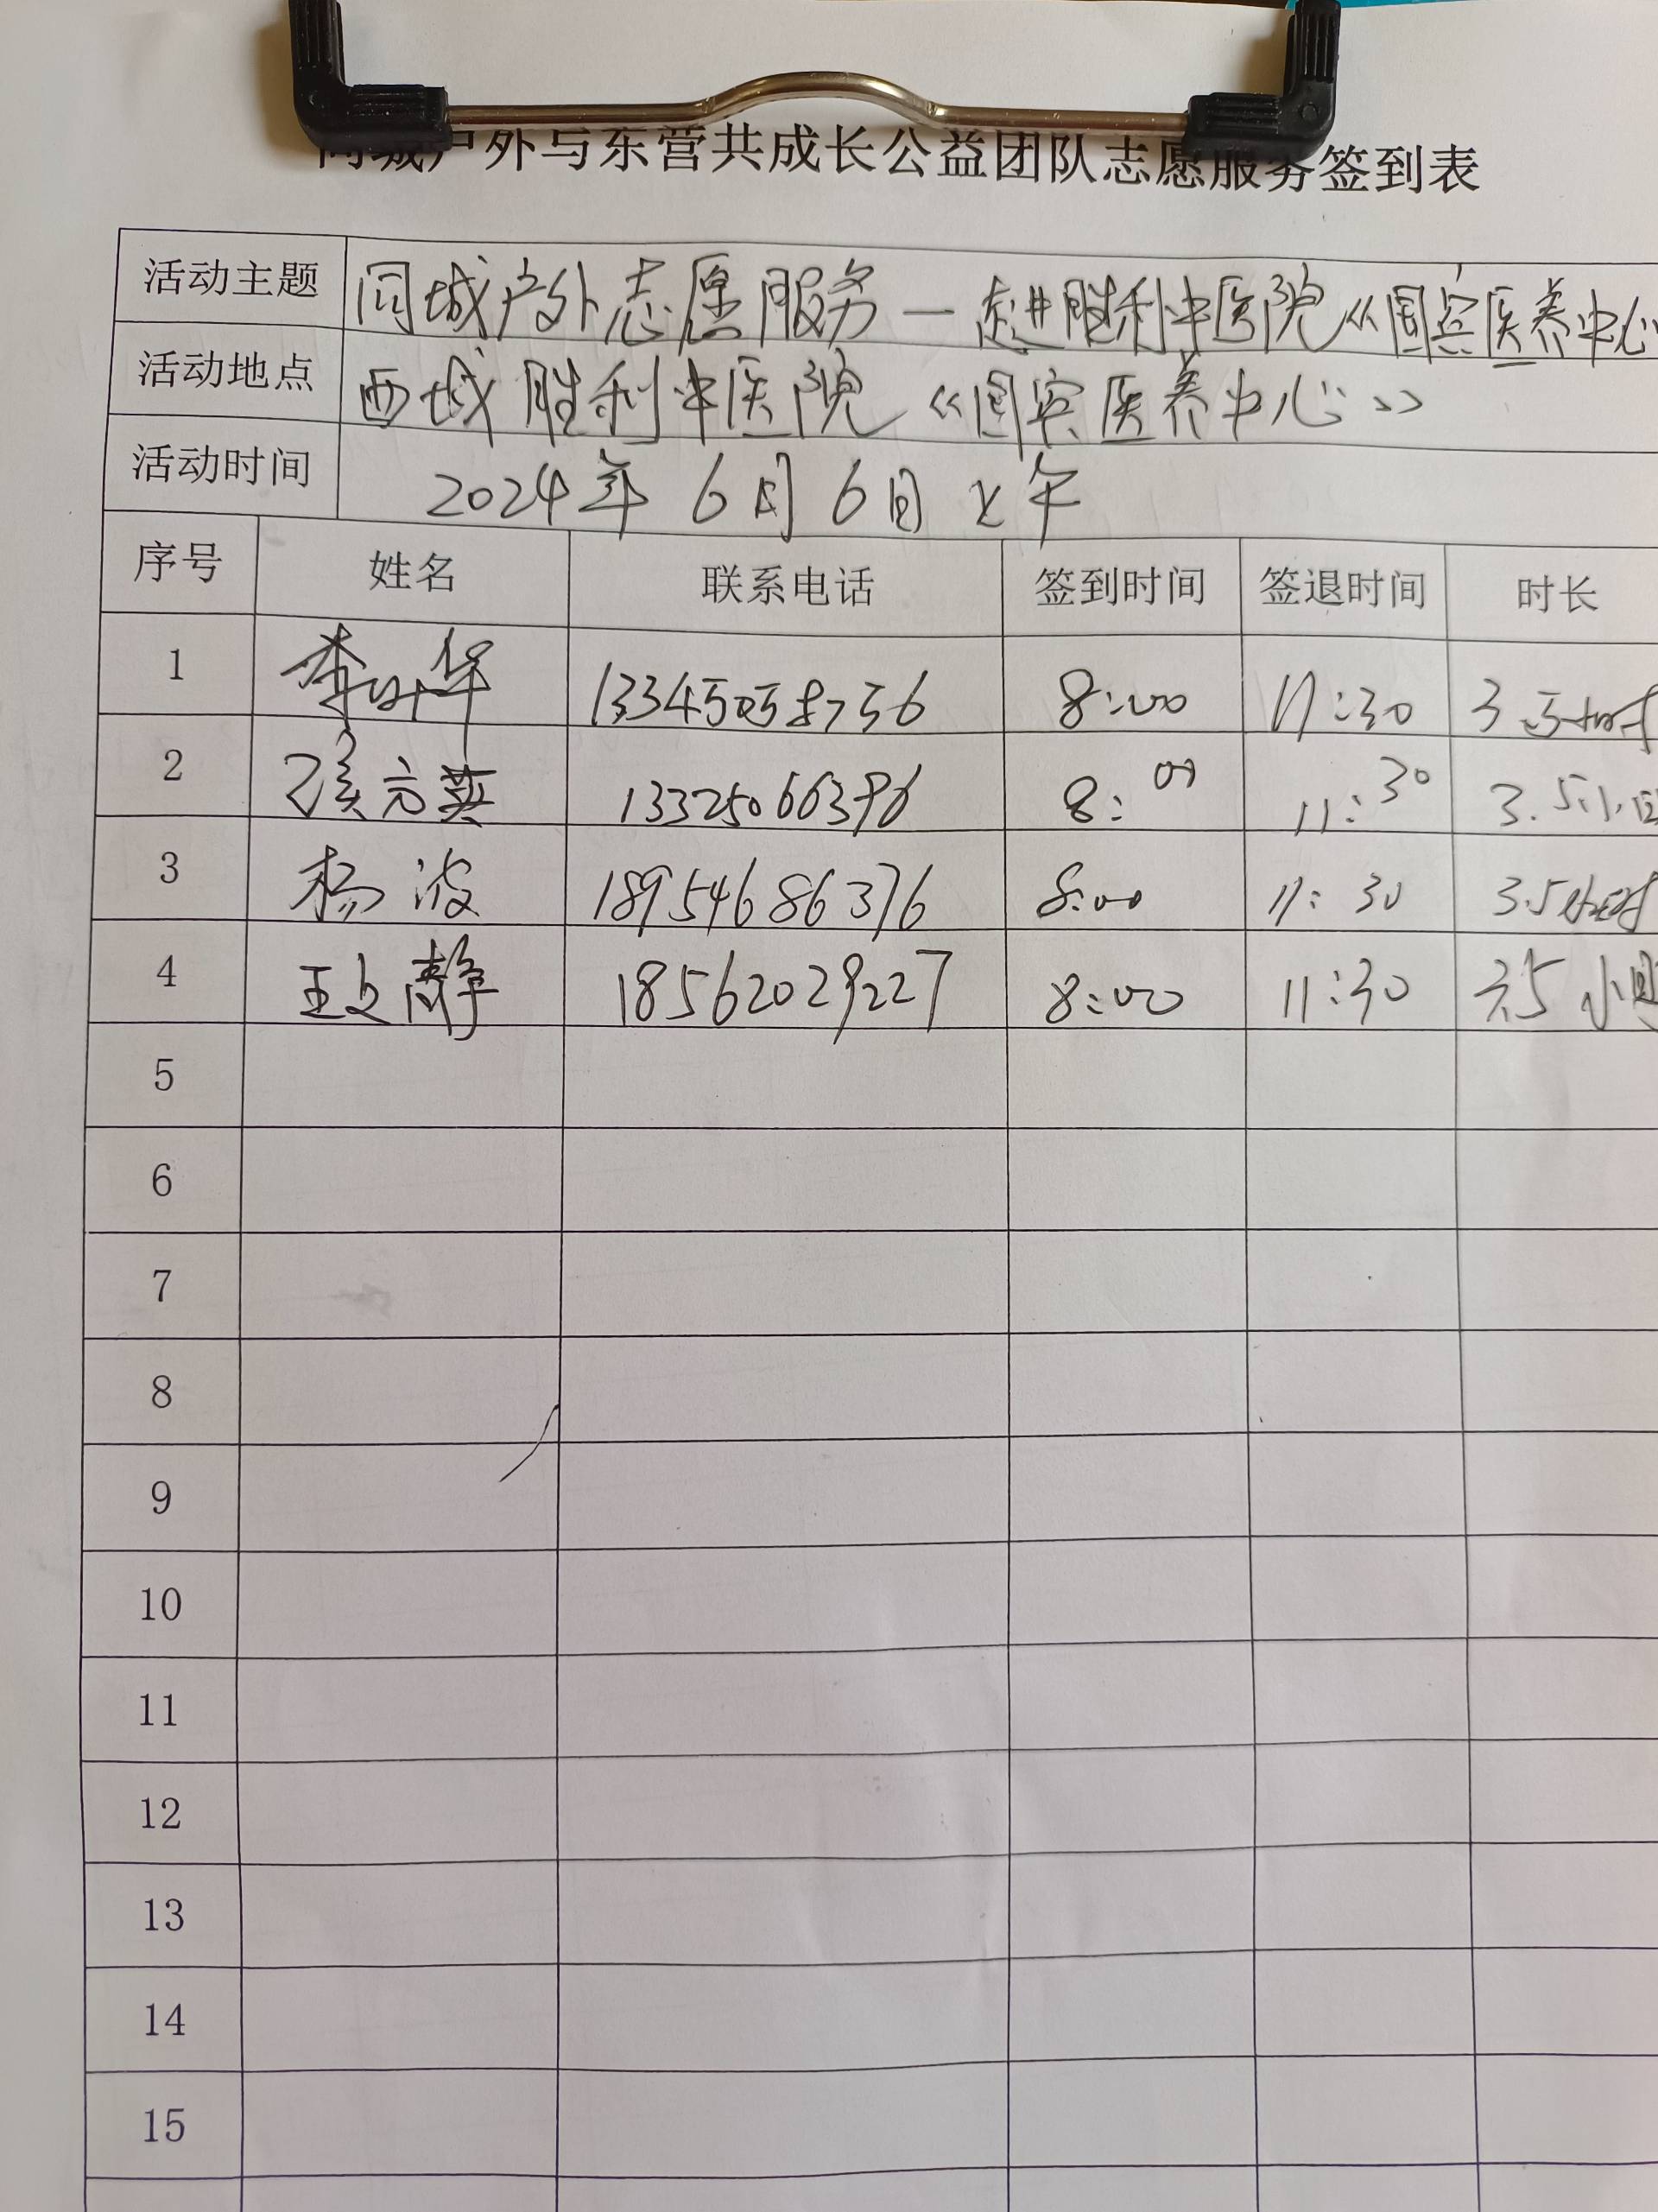 同城户外与东营共成长公益团队志愿服务签到表
活动主题 同城户外志愿服务—走进胜利中医院《国宾医养中心
活动地点 西城胜利中医院《国宾医养中心》
活动时间 2024年6月6日上午
序号 姓名 联系电话 签到时间 签退时间 时长
1 李 华 8:00 11:30 3.5小时
2 侯元英 13325066396 8:00 11:30 3.5小时
3 杨波 18954686376 8:00 11:30 3.5小时
4 王文静 18562029227 8:00 11:30 3.5小时
5
6
7
8
9
10
11
12
13
14
15